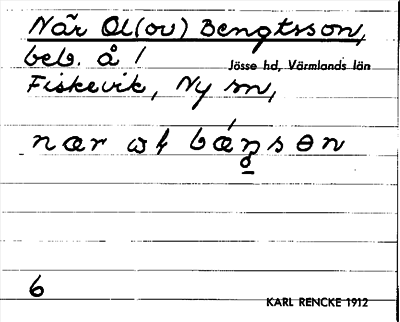 När Ol(ov) Bengtsson,
beb. å /
Jösse hd, Värmlands län
Fiskevik, Ny sn,
6
KARL RENCKE 1912